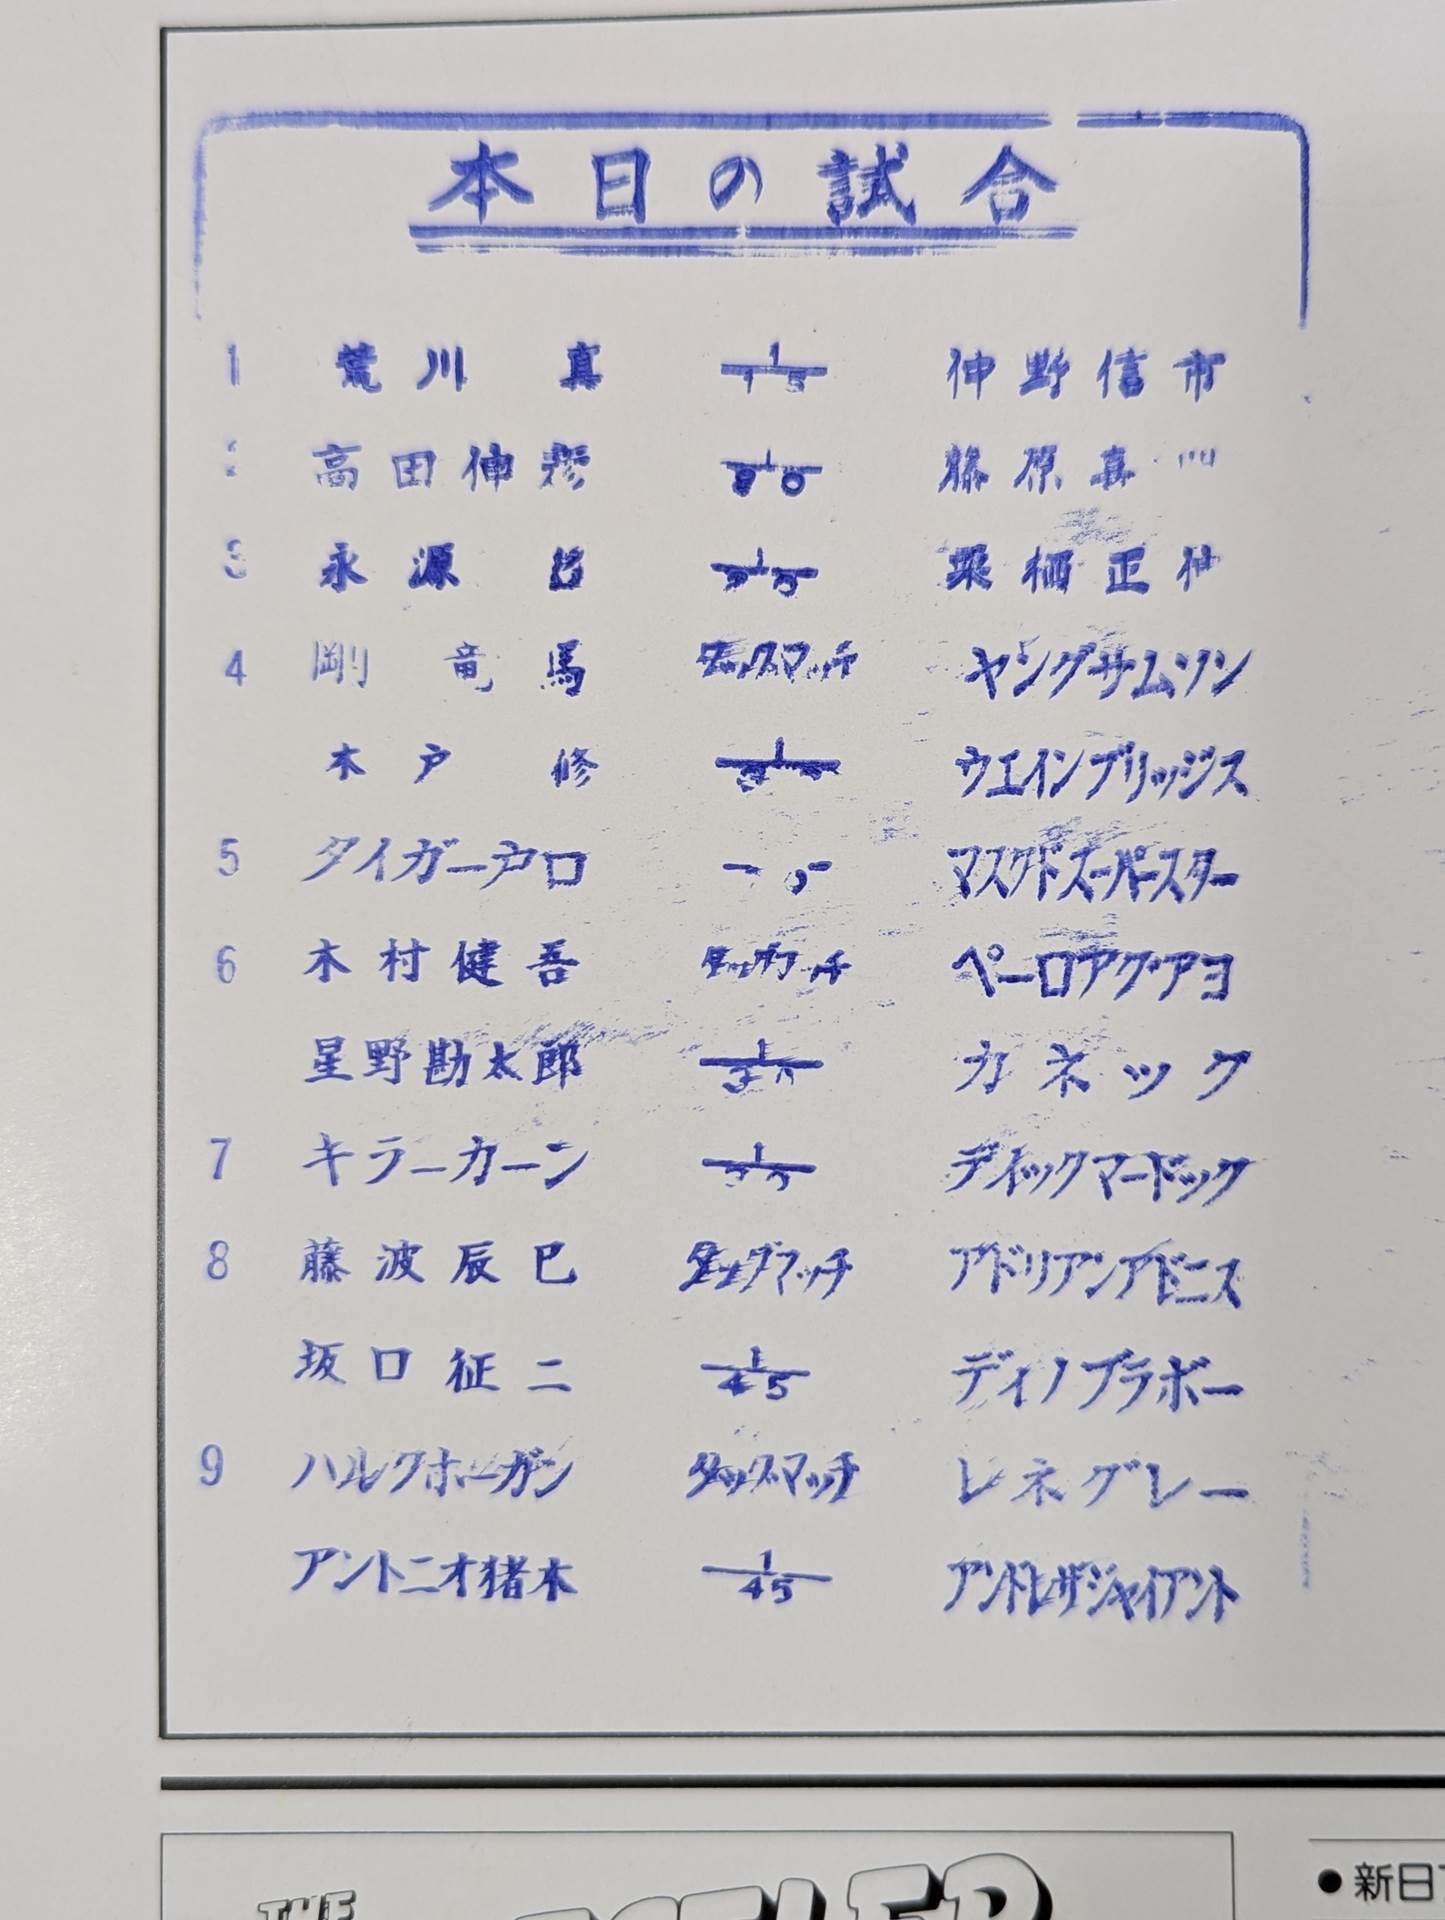 本日の試合
1 荒川真 1/15 仲野信市
高田伸彦 1/20 藤原喜
3 永源 1/ 栗栖正伸
4 剛竜馬 タッグマッチ ヤングサムソン
木戸修 1/ ウエインブリッジス
5 タイガー戸口 マスクドスーパースター
6 木村健吾 タッグマッチ ペーロアグアヨ
星野勘太郎 1/30 カネック
7 キラーカーン 1/ ディックマードック
8 藤波辰巳 タッグマッチ アドリアンアドニス
坂口征二 1/45 ディノブラボー
9 ハルクホーガン タッグマッチ レネグレー
アントニオ猪木 1/45 アンドレザジャイアント
THE
●新日